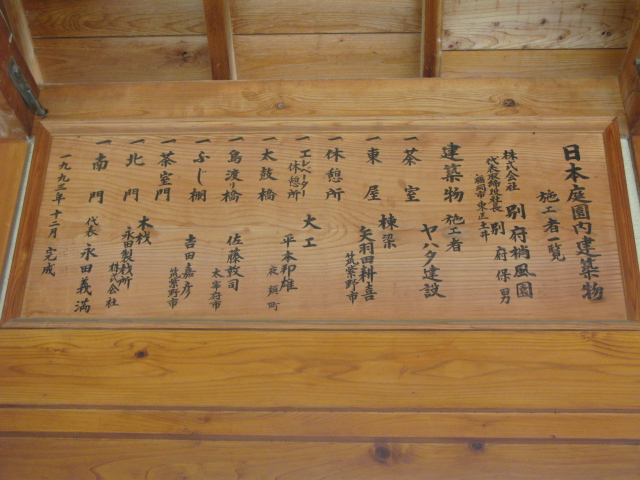 日本庭園内建築物
施工者一覧
株式会社 別府梢風園
代表取締役社長 別府保男
福岡市東区土井
建築物 施工者
ヤハタ建設
一 茶室
一 東屋 棟梁 矢羽田耕喜
筑紫野市
一 休憩所
一 エレベーター休憩所 大工 平本邦雄
夜須町
一 太鼓橋
一 鳥渡り橋 佐藤敦司
太宰府市
一 ふじ棚
一 茶室門 吉田嘉彦
筑紫野市
一 北門 木材 永田製材所
株式会社
一 南門 代表 永田義満
一九九三年十二月 完成